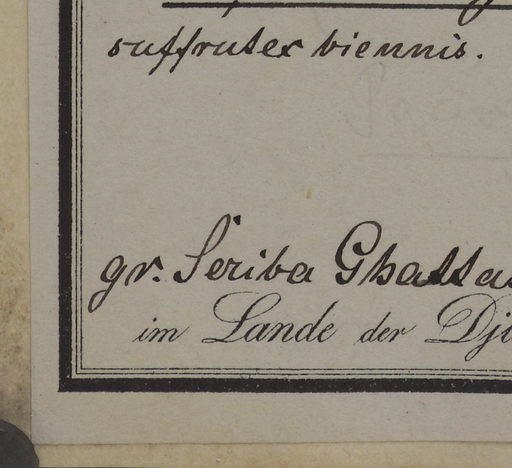 suffrutex biennis.
gr. Seriba Ghattas
im Lande der Dji